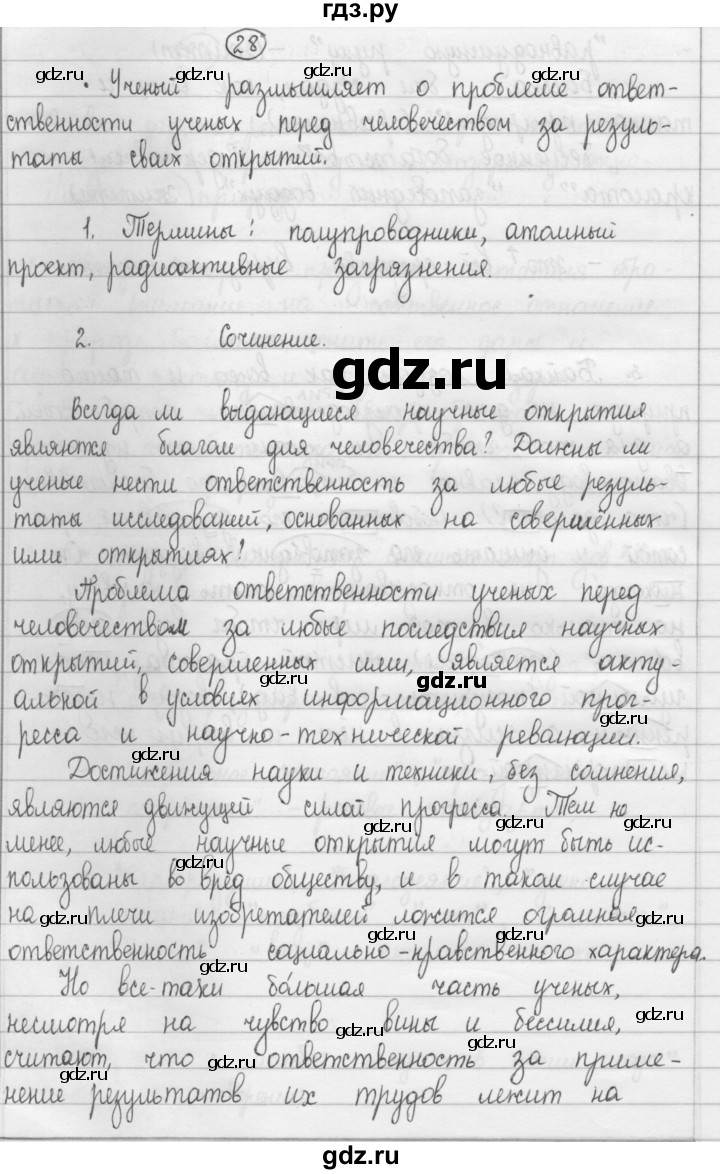 гдз.ру
28
• Ученый размышляет о проблеме ответ-
ственности ученых перед человечеством за резуль-
таты своих открытий.
1. Термины: полупроводники, атомный
проект, радиоактивные загрязнения.
2. Сочинение.
Всегда ли выдающиеся научные открытия
являются благом для человечества? Должны ли
ученые нести ответственность за любые резуль-
таты исследований, основанных на совершённых
ими открытиях?
Проблема ответственности ученых перед
человечеством за любые последствия научных
открытий, совершенных ими, является акту-
альной в условиях информационного прог-
ресса и научно-технической революции.
Достижения науки и техники, без сомнения,
являются движущей силой прогресса. Тем не
менее, любые научные открытия могут быть ис-
пользованы во вред обществу, и в таком случае
на плечи изобретателей ложится огромная
ответственность социально-нравственного характера.
Но все-таки бо́льшая часть ученых,
несмотря на чувство вины и бессилия,
считают, что ответственность за приме-
нение результатов их трудов лежит на
gdz.ru